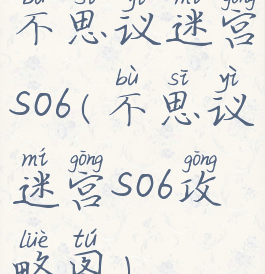 bù sī yì mí gōng
不思议迷宫
bù sī yì
S06(不思议
mí gōng gōng
迷宫S06攻
lüè tú
略图)